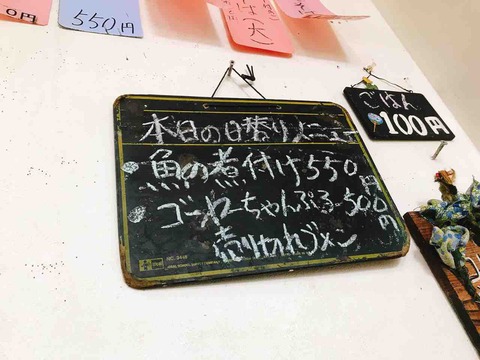 0円
550円
本日の日替りメニュー
・魚の煮付け550円
・ゴーヤーちゃんぷる-500円
売り切れゴメン
ごはん
100円